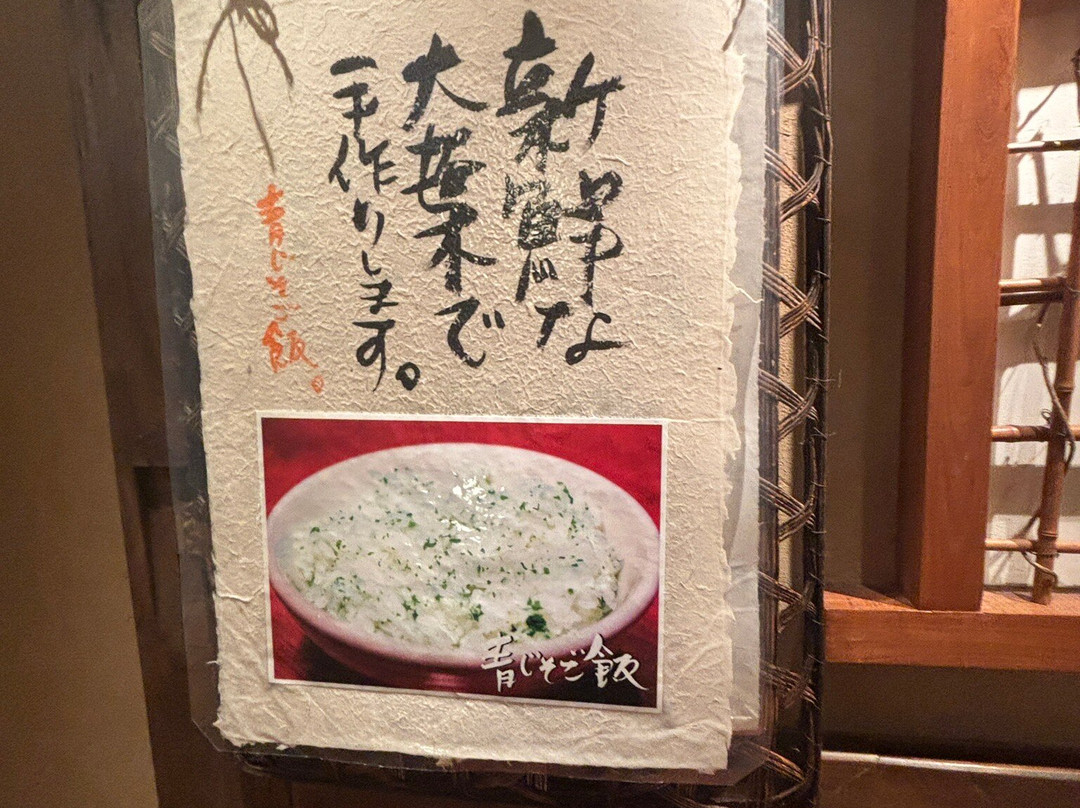 新鮮な
大葉で
手作りします。
青じそご飯。
青じそご飯